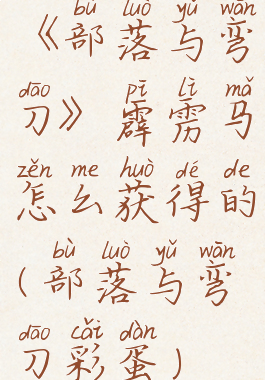 bù luò yǔ wān
《部落与弯
dāo pī lì mǎ
刀》 霹雳马
zěn me huò dé de
怎么获得的
bù luò yǔ wān
(部落与弯
dāo cǎi dàn
刀彩蛋)